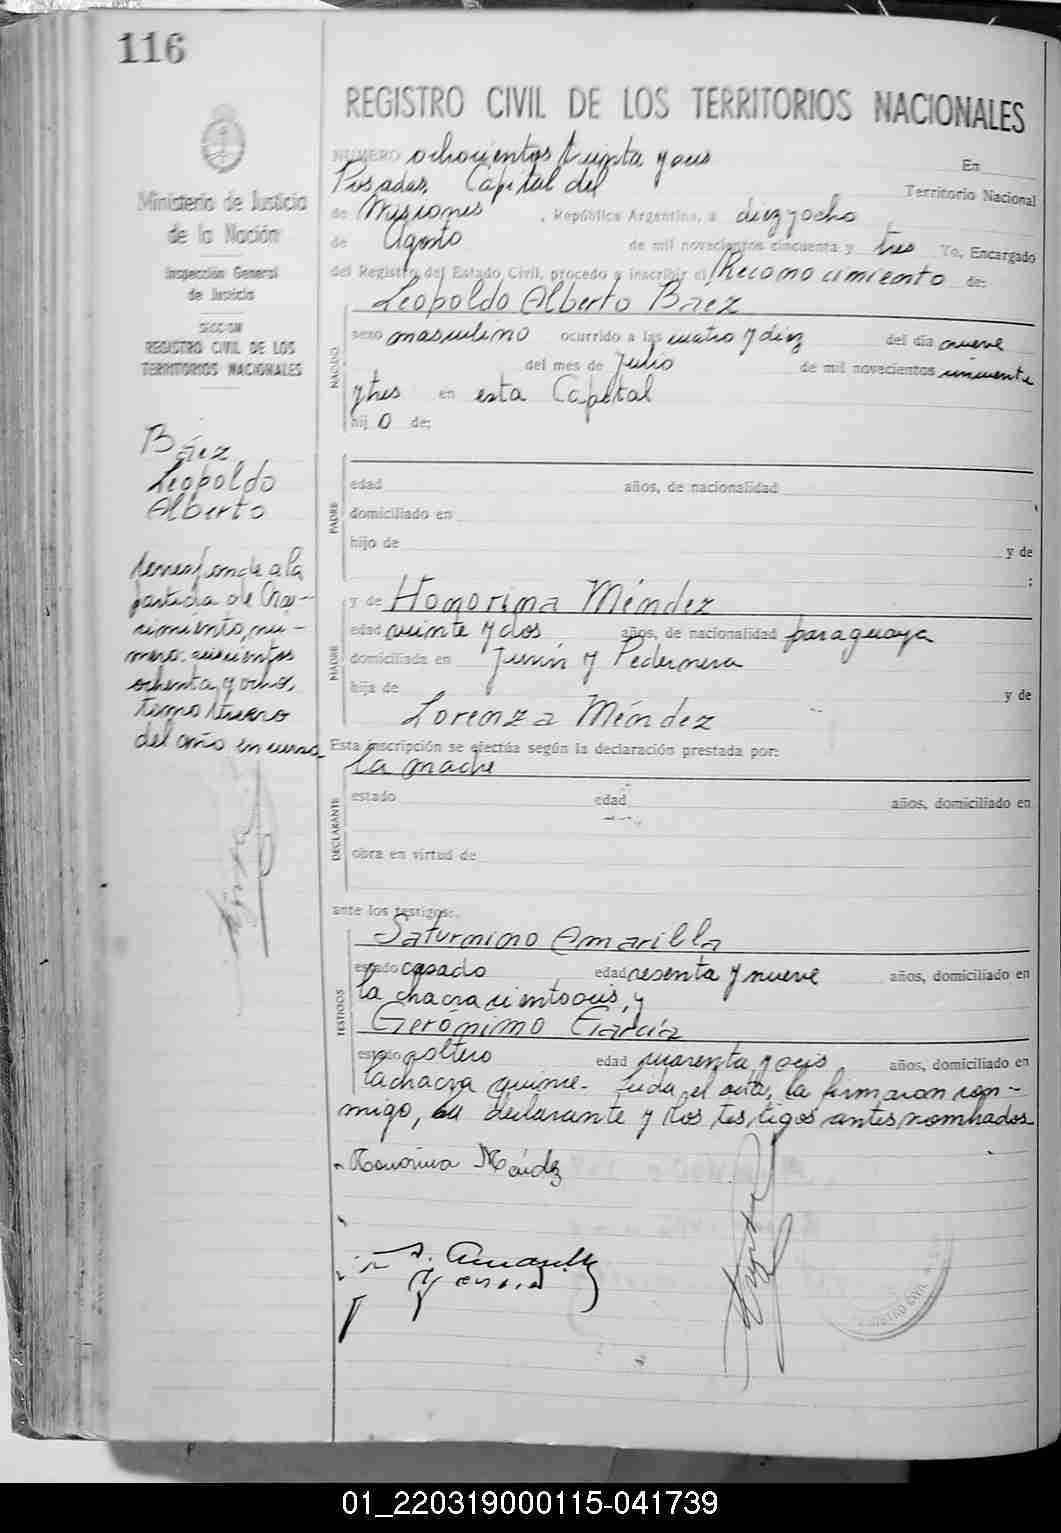 116
REGISTRO CIVIL DE LOS TERRITORIOS NACIONALES
Ministerio de Justicia
de la Nación
Inspección General
de Justicia
SECCION
REGISTRO CIVIL DE LOS
TERRITORIOS NACIONALES
Báez
Leopoldo
Alberto
Corresponde a la
partida de Naci-
miento, nú-
mero: seiscientos
ochenta y ocho,
tomo tercero
del año en curso.
NUMERO ochocientos treinta y seis En
Posadas, Capital del Territorio Nacional
de Misiones, República Argentina, a diez y ocho
de Agosto de mil novecientos cincuenta y tres Yo, Encargado
del Registro del Estado Civil, procedo a inscribir el Reconocimiento de:
Leopoldo Alberto Báez
NACIDO
sexo masculino ocurrido a las cuatro y diez del día nueve
del mes de Julio de mil novecientos cincuenta
y tres en esta Capital
hijo de:
PADRE
edad años, de nacionalidad
domiciliado en
hijo de y de
;
MADRE
y de Honorina Méndez
edad veinte y dos años, de nacionalidad paraguaya
domiciliada en Junín y Pedernera
hija de y de
Lorenza Méndez
Esta inscripción se efectúa según la declaración prestada por:
la madre
DECLARANTE
estado edad años, domiciliado en
obra en virtud de
ante los testigos:
TESTIGOS
Saturnino Amarilla
estado casado edad sesenta y nueve años, domiciliado en
la chacra ciento seis, y
Gerónimo García
estado soltero edad cuarenta y seis años, domiciliado en
la chacra quince. Leída el acta, la firmaron con-
migo, la declarante y los testigos antes nombrados
Honorina Méndez
S. Amarilla
REGISTRO CIVIL
01_220319000115-041739